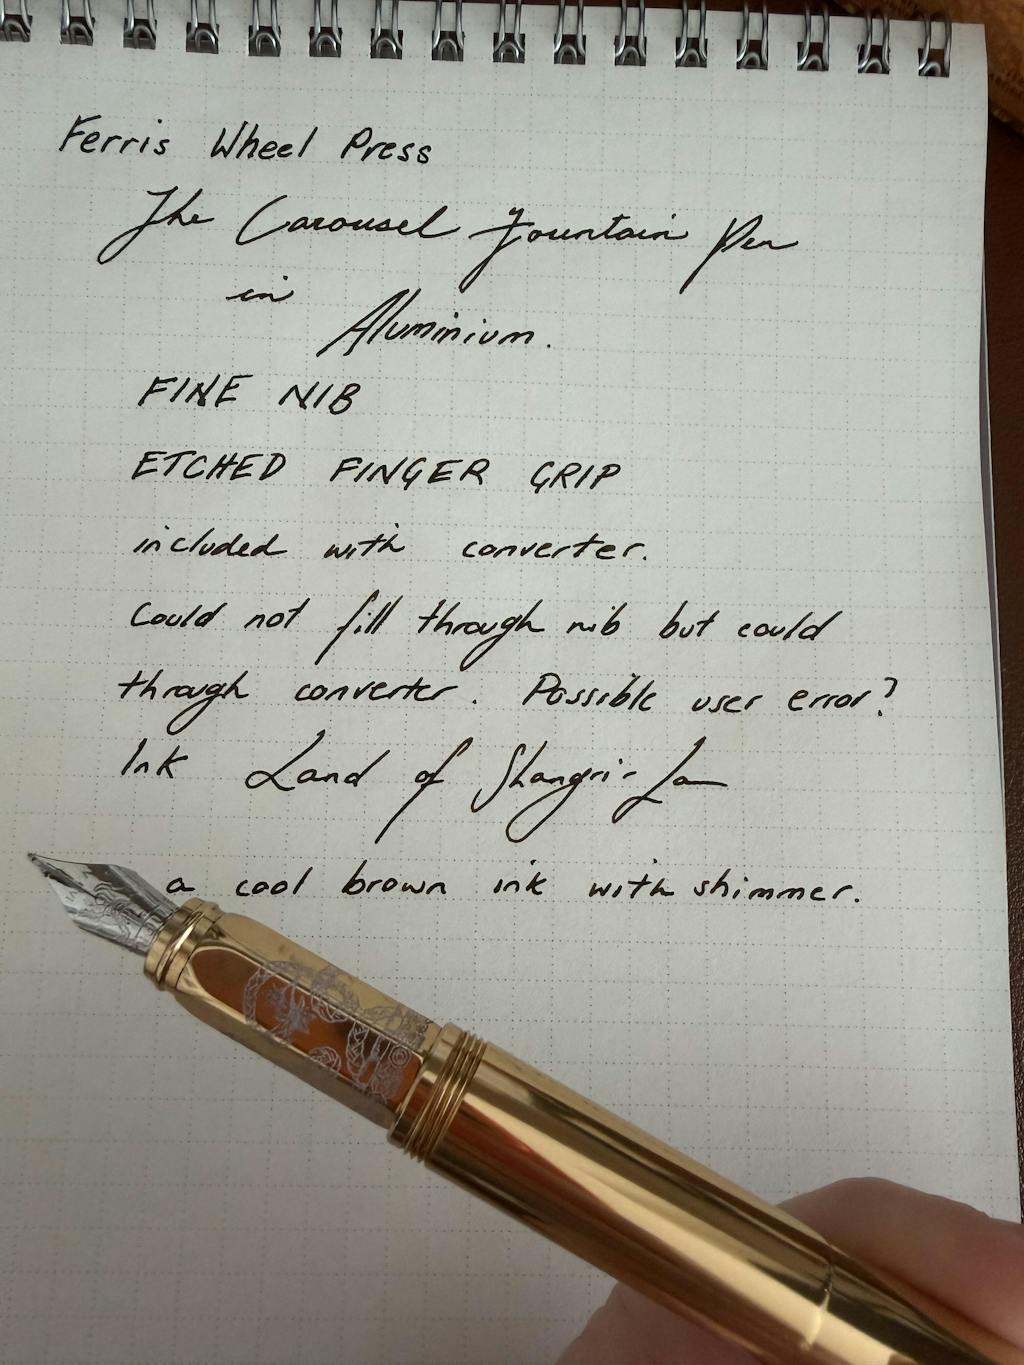 Ferris Wheel Press
The Carousel Fountain Pen
in
Aluminium.
FINE NIB
ETCHED FINGER GRIP
included with converter.
Could not fill through nib but could
through converter. Possible user error?
Ink Land of Shangri-La
a cool brown ink with shimmer.